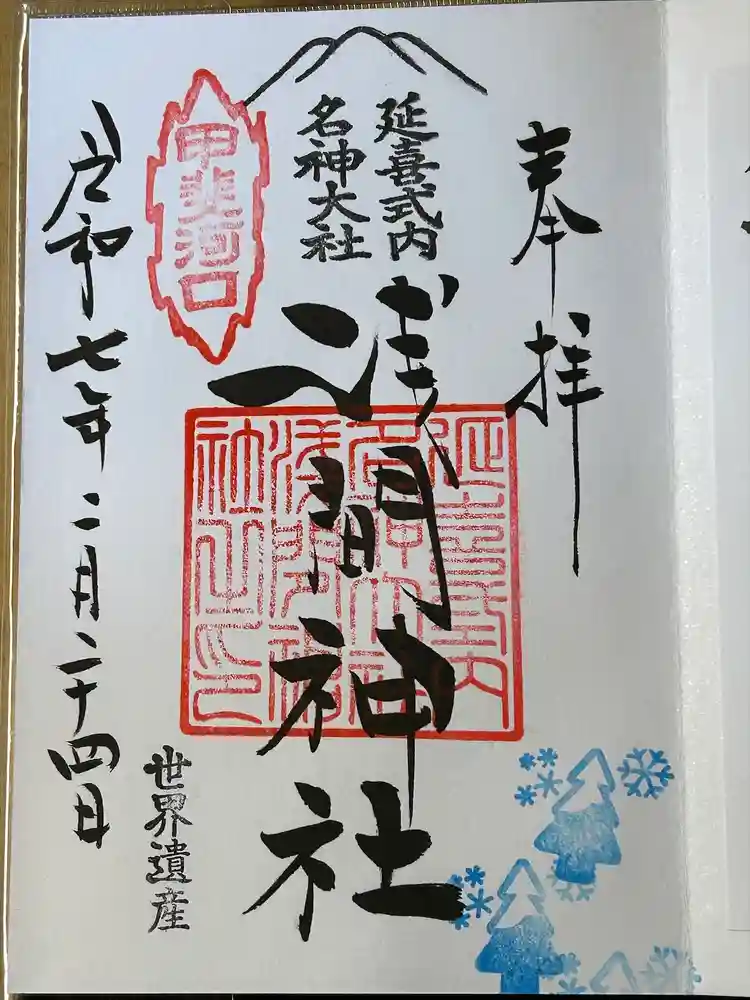 奉拝
延喜式内
名神大社
浅間神社
延喜式内
名神大社
浅間神
社之印
甲斐河口
世界遺産
令和七年二月二十四日